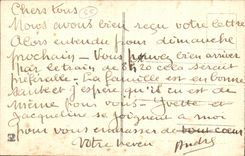 Chers tous.
Nous avons bien reçu votre lettre
Alors entendu pour dimanche
prochain - Vous pouvez bien arriver
par le train de 8h20 cela serait
préférable. La famille est en bonne
santé et j'espère qu'il en est de
même pour vous - Yvette et
Jacqueline se joignent à moi
pour vous embrasser de tout cœur
Votre neveu André